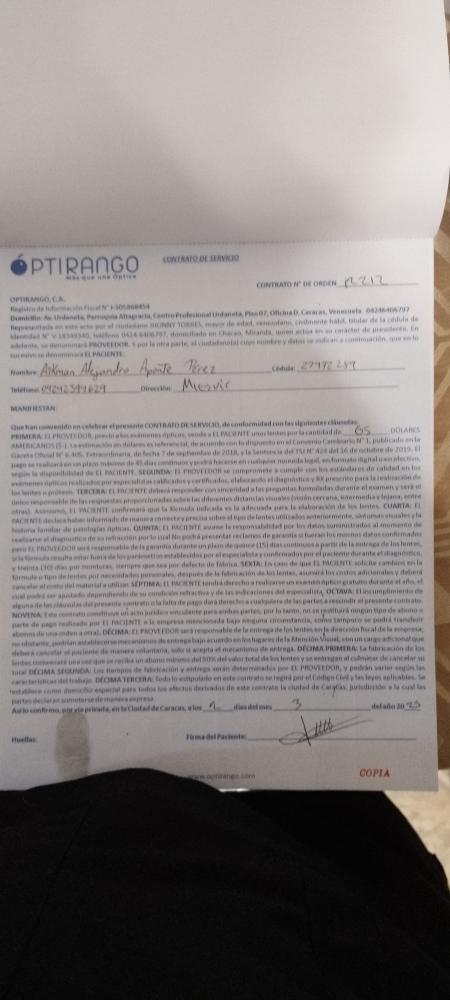 ÓPTIRANGO
Más que una Óptica
CONTRATO DE SERVICIO
CONTRATO N° DE ORDEN
OPTIRANGO, C.A.
Registro de Información Fiscal N° J-505868454
Domicilio: Av. Urdaneta, Parroquia Altagracia, Centro Profesional Urdaneta, Piso 07, Oficina D, Caracas, Venezuela. 04246406797
Representada en este acto por el ciudadano JHONNY TORRES, mayor de edad, venezolano, civilmente hábil, titular de la cédula de
Identidad N° V-18349340, teléfono 0424-6406797, domiciliado en Chacao, Miranda, quien actúa en su carácter de presidente. En
adelante, se denominará PROVEEDOR. Y por la otra parte, el ciudadano(a) cuyo nombre y datos se indican a continuación, que en lo
sucesivo se denominará EL PACIENTE:
Nombre: Alejandro Aponte Pérez Cédula:
Teléfono: Dirección:
MANIFIESTAN:
Que han convenido en celebrar el presente CONTRATO DE SERVICIO, de conformidad con las siguientes cláusulas:
PRIMERA: EL PROVEEDOR, previo a los exámenes ópticos, vende a EL PACIENTE unos lentes por la cantidad de 65 DÓLARES
AMERICANOS ($-). La estimación en dólares es referencial, de acuerdo con lo dispuesto en el Convenio Cambiario N° 1, publicado en la
Gaceta Oficial N° 6.405, Extraordinaria, de fecha 7 de septiembre de 2018, y la Sentencia del TSJ N° 424 del 16 de octubre de 2019. El
pago se realizará en un plazo máximo de 45 días continuos y podrá hacerse en cualquier moneda legal, en formato digital o en efectivo,
según la disponibilidad de EL PACIENTE. SEGUNDA: EL PROVEEDOR se compromete a cumplir con los estándares de calidad en los
exámenes ópticos realizados por especialistas calificados y certificados, elaborando el diagnóstico y RX prescrito para la realización de
los lentes o prótesis. TERCERA: EL PACIENTE deberá responder con sinceridad a las preguntas formuladas durante el examen y será el
único responsable de las respuestas proporcionadas sobre las diferentes distancias visuales (visión cercana, intermedia y lejana, entre
otras). Asimismo, EL PACIENTE confirmará que la fórmula indicada es la adecuada para la elaboración de los lentes. CUARTA: EL
PACIENTE declara haber informado de manera correcta y precisa sobre el tipo de lentes utilizados anteriormente, síntomas visuales y la
historia familiar de patologías ópticas. QUINTA: EL PACIENTE asume la responsabilidad por los datos suministrados al momento de
realizarse el diagnóstico de su refracción por lo cual No podrá presentar reclamos de garantía si fueran los mismos datos confirmados
pero EL PROVEEDOR será responsable de la garantía durante un plazo de quince (15) días continuos a partir de la entrega de los lentes,
si la fórmula resulta estar fuera de los parámetros establecidos por el especialista y confirmados por el paciente durante el diagnóstico,
y treinta (30) días por monturas, siempre que sea por defecto de fábrica. SEXTA: En caso de que EL PACIENTE solicite cambios en la
fórmula o tipo de lentes por necesidades personales, después de la fabricación de los lentes, asumirá los costos adicionales y deberá
cancelar el costo del material a utilizar. SÉPTIMA: EL PACIENTE tendrá derecho a realizarse un examen óptico gratuito durante el año, el
cual podrá ser ajustado dependiendo de su condición refractiva y de las indicaciones del especialista. OCTAVA: El incumplimiento de
alguna de las cláusulas del presente contrato o la falta de pago dará derecho a cualquiera de las partes a rescindir el presente contrato.
NOVENA: Este contrato constituye un acto jurídico vinculante para ambas partes, por lo tanto, no se restituirá ningún tipo de abono o
parte de pago realizado por EL PACIENTE a la empresa mencionada bajo ninguna circunstancia, como tampoco se podrá transferir
abonos de una orden a otra). DÉCIMA: EL PROVEEDOR será responsable de la entrega de los lentes en la dirección fiscal de la empresa,
no obstante, podrían establecerse mecanismos de entrega bajo acuerdo en los lugares de la Atención Visual, con un cargo adicional que
deberá cancelar el paciente de manera voluntaria, solo si acepta el mecanismo de entrega. DÉCIMA PRIMERA: La fabricación de los
lentes comenzará una vez que se reciba un abono mínimo del 50% del valor total de los lentes y se entregan al culminar de cancelar su
total DÉCIMA SEGUNDA: Los tiempos de fabricación y entrega serán determinados por EL PROVEEDOR, y podrán variar según las
características del trabajo. DÉCIMA TERCERA: Todo lo estipulado en este contrato se regirá por el Código Civil y las leyes aplicables. Se
establece como domicilio especial para todos los efectos derivados de este contrato la ciudad de Caracas, jurisdicción a la cual las
partes declaran someterse de manera expresa.
Así lo confirmo, por vía privada, en la Ciudad de Caracas, a los días del mes 3 del año 2025
Huellas: Firma del Paciente:
www.optirango.com
COPIA